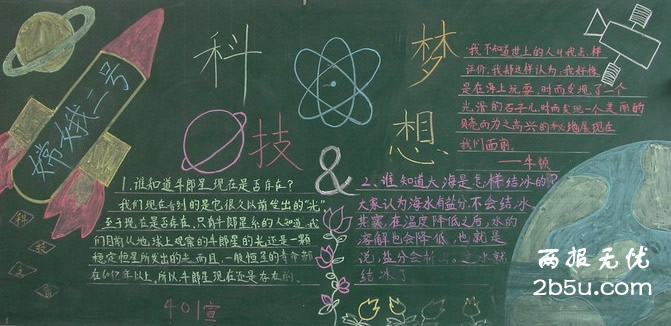 嫦娥二号
科技&梦想
我不知道世上的人对我怎样
评价,我却这样认为:我好像
是在海上玩耍,时而发现了一个
光滑的石子儿,时而发现一个美丽的
贝壳而为之高兴的
我们面前。
——牛顿
1.谁知道牛郎星现在是否存在?
我们现在看到的是它很久以前发出的“光”
至于现在是否存在,只有牛郎星系的人知道,我
们目前从地球上观察的牛郎星的光还是一颗
稳定恒星所发出的光,而且一般恒星的寿命都
年以上,所以牛郎星现在还是存在的.
2、谁知道大海是怎样结冰的?
大家认为海水有盐分,不会结冰
其实,在温度降低之后,水的
溶解也会降低,也就是
说,盐分会
结冰了
401宣
两报无忧
2b5u.com